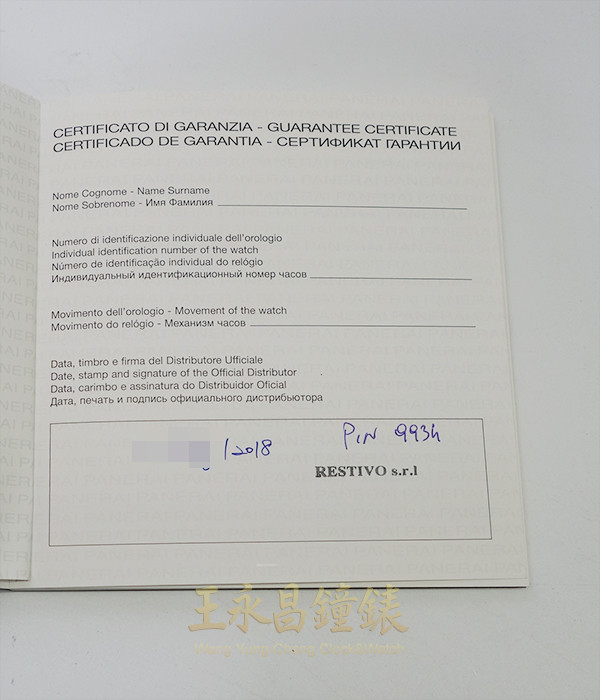 CERTIFICATO DI GARANZIA - GUARANTEE CERTIFICATE
CERTIFICADO DE GARANTIA - СЕРТИФИКАТ ГАРАНТИИ
Nome Cognome - Name Surname
Nome Sobrenome - Имя Фамилия
Numero di identificazione individuale dell'orologio
Individual identification number of the watch
Número de identificação individual do relógio
Индивидуальный идентификационный номер часов
Movimento dell'orologio - Movement of the watch
Movimento do relógio - Механизм часов
Data, timbro e firma del Distributore Ufficiale
Date, stamp and signature of the Official Distributor
Data, carimbo e assinatura do Distribuidor Oficial
Дата, печать и подпись официального дистрибьютора
/2018 PIN 9934
RESTIVO s.r.l
王永昌鐘錶